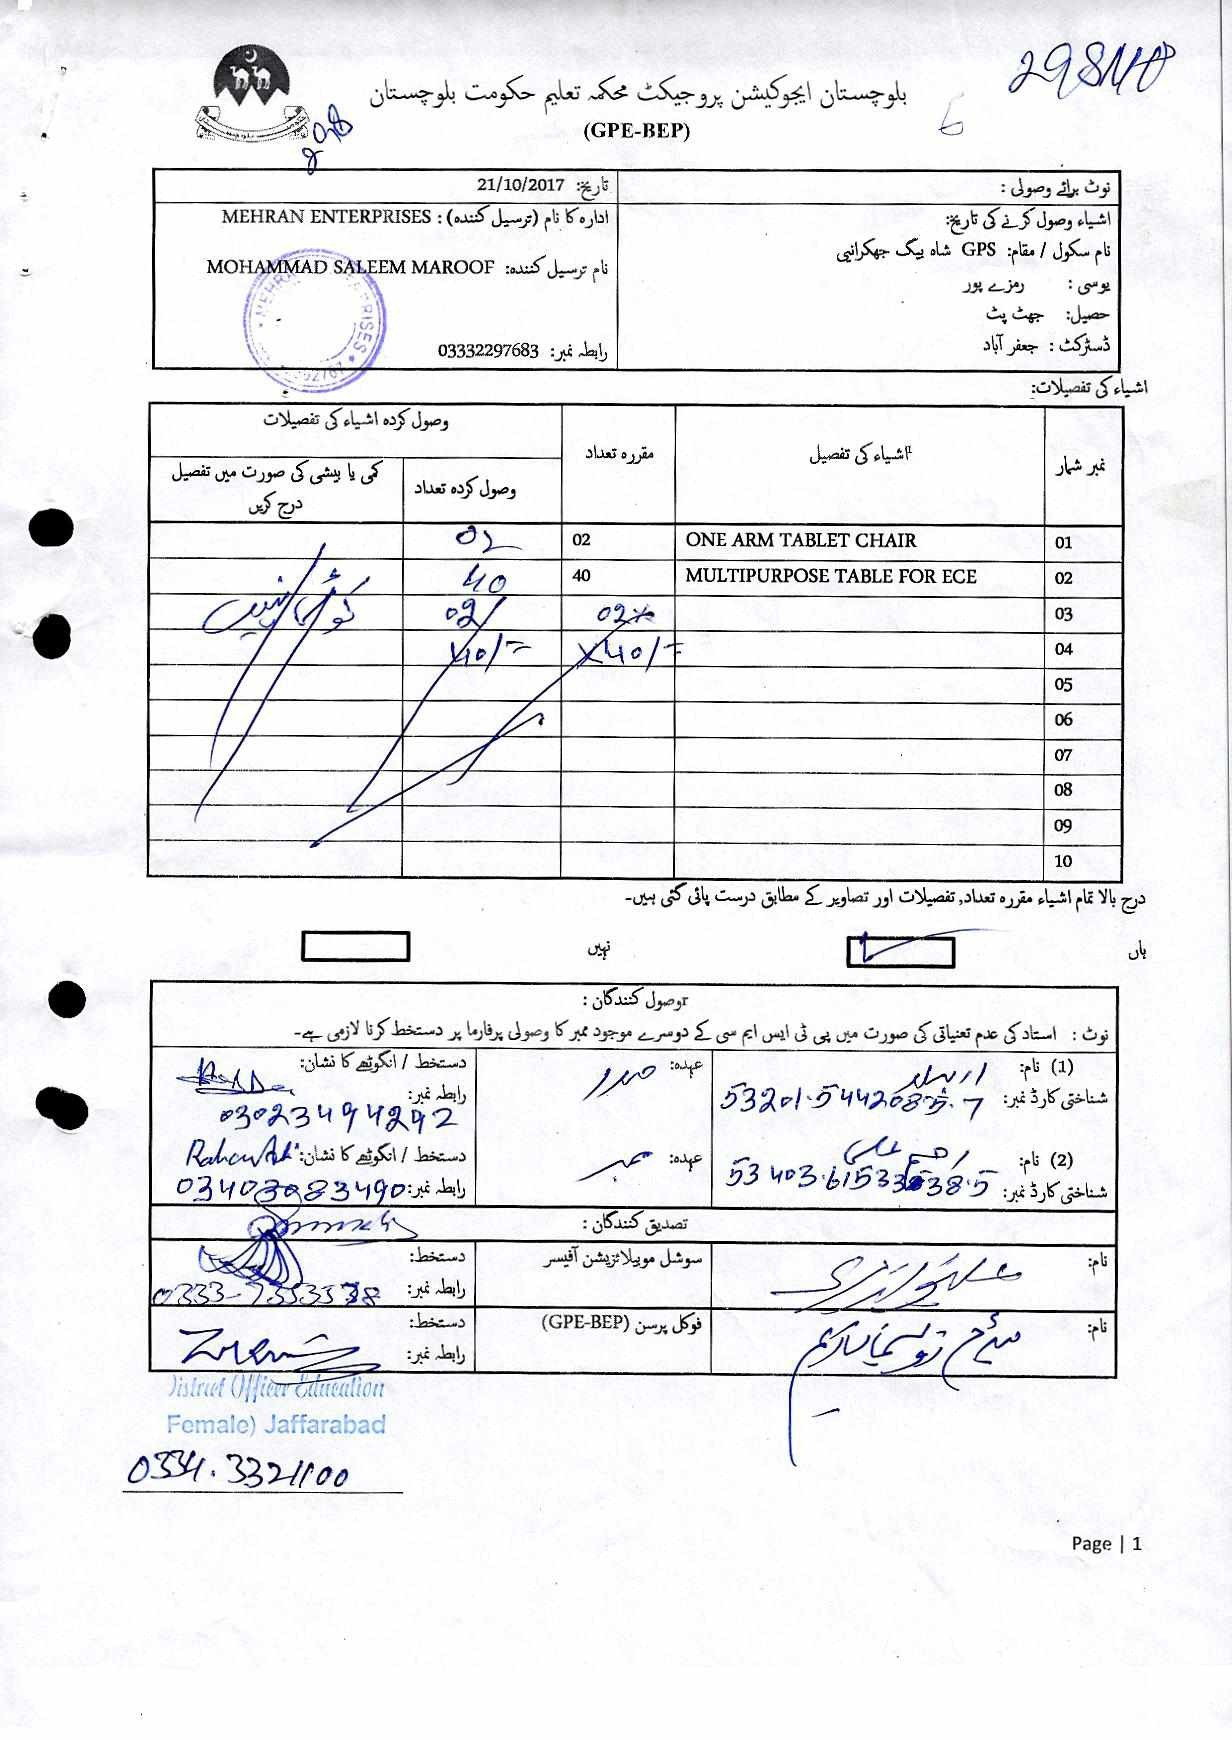 بلوچستان ایجوکیشن پروجیکٹ محکمہ تعلیم حکومت بلوچستان
(GPE-BEP)
6
نوٹ برائے وصولی :
تاریخ: 21/10/2017
اشیاء وصول کرنے کی تاریخ:
ادارہ کا نام (ترسیل کنندہ) : MEHRAN ENTERPRISES
نام سکول / مقام: GPS شاہ بیگ جھکرانیی
نام ترسیل کنندہ: MOHAMMAD SALEEM MAROOF
یوسی : رمزے پور
حصیل: جھٹ پٹ
ڈسٹرکٹ : جعفر آباد
رابطہ نمبر: 03332297683
اشیاء کی تفصیلات:
نمبر شمار
اشیاء کی تفصیل
مقررہ تعداد
وصول کردہ اشیاء کی تفصیلات
وصول کردہ تعداد
کمی یا بیشی کی صورت میں تفصیل درج کریں
01 ONE ARM TABLET CHAIR 02 02
02 MULTIPURPOSE TABLE FOR ECE 40 40
03 02 02/
04 X40/= X40/=
کوئی نہیں
05
06
07
08
09
10
درج بالا تمام اشیاء مقررہ تعداد, تفصیلات اور تصاویر کے مطابق درست پائی گئی ہیں۔
ہاں
نہیں
وصول کنندگان :
نوٹ : استاد کی عدم تعنیاتی کی صورت میں پی ٹی ایس ایم سی کے دوسرے موجود ممبر کا وصولی پرفارما پر دستخط کرنا لازمی ہے۔
(1) نام:
عہدہ: صدر
دستخط / انگوٹھے کا نشان:
شناختی کارڈ نمبر: 53201-5442085-7
رابطہ نمبر: 03023494292
(2) نام:
عہدہ: ممبر
دستخط / انگوٹھے کا نشان:
شناختی کارڈ نمبر:
رابطہ نمبر: 03403083490
تصدیق کنندگان :
نام:
سوشل موبیلائزیشن آفیسر
دستخط:
رابطہ نمبر:
نام:
فوکل پرسن (GPE-BEP)
دستخط:
رابطہ نمبر:
District Officer Education
Female) Jaffarabad
0334.3321100
Page | 1